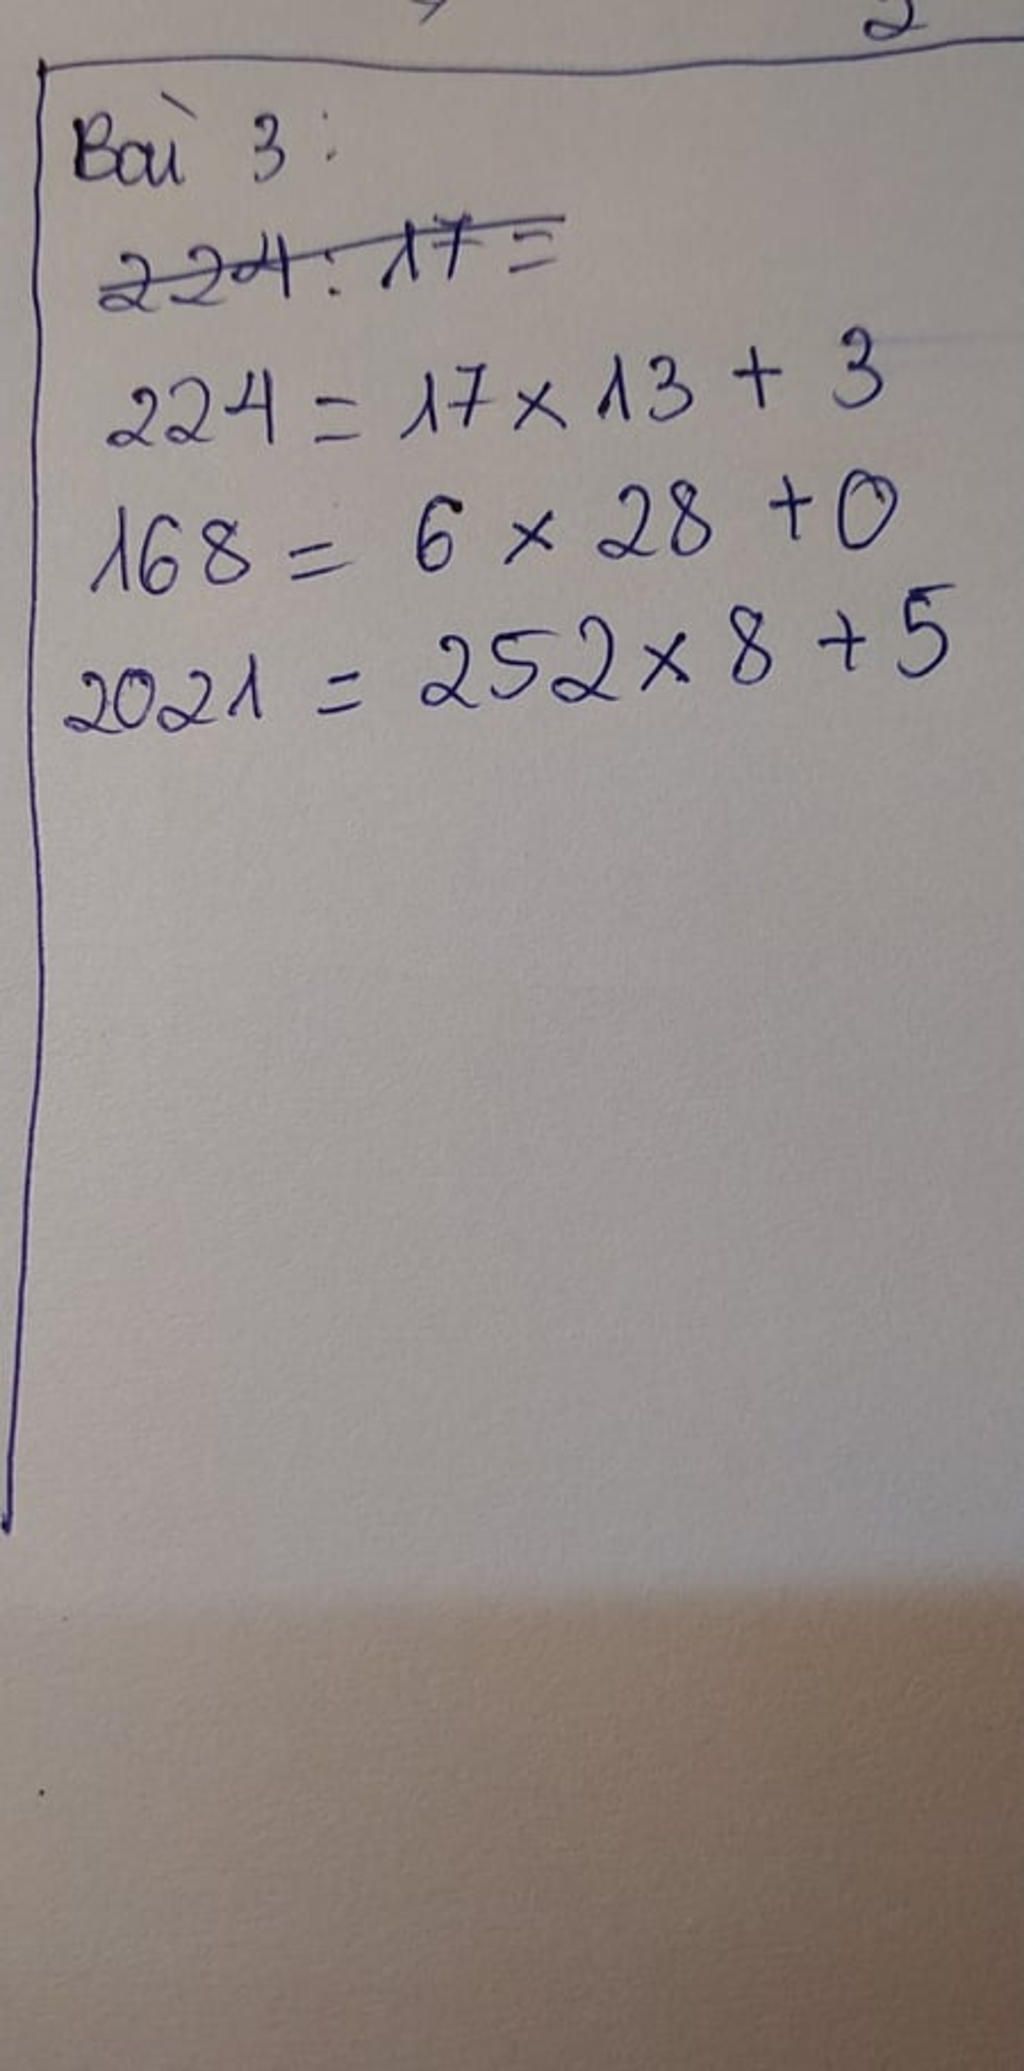 2
Bài 3:
224: 17 =
224 = 17 x 13 + 3
168 = 6 x 28 + 0
2021 = 252 x 8 + 5